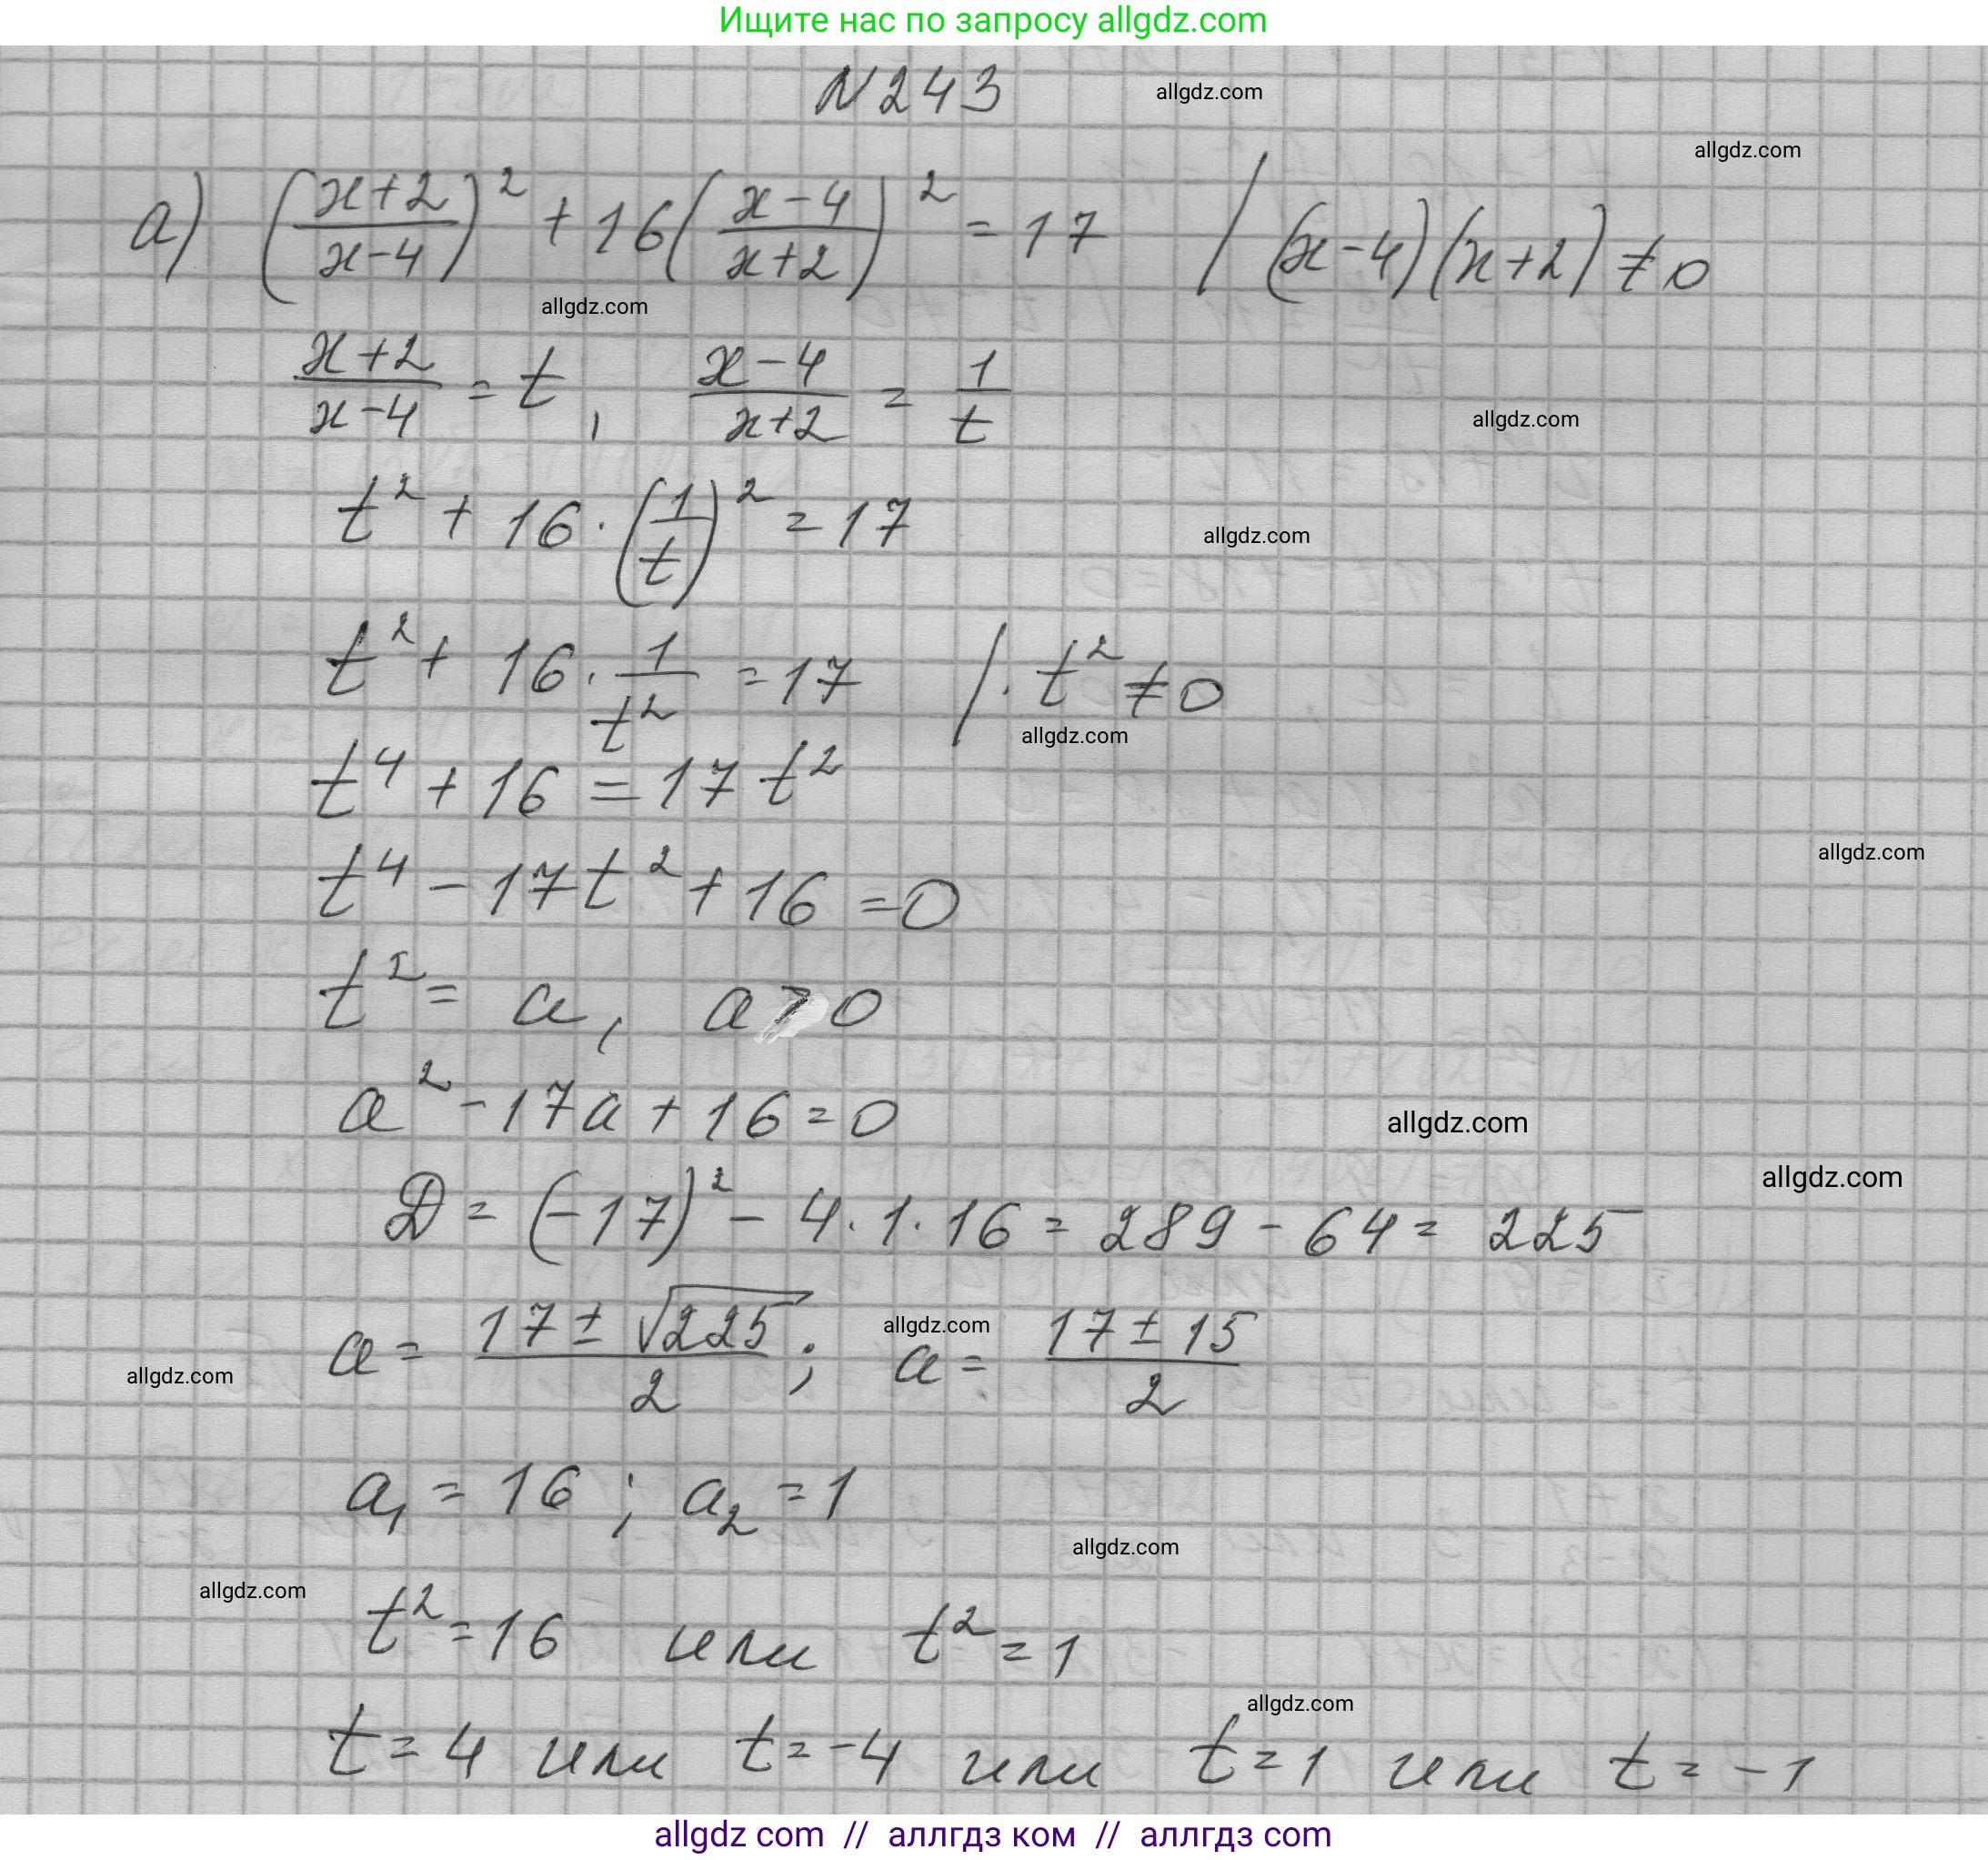 Ищите нас по запросу allgdz.com
N243
allgdz.com
allgdz.com
a) ((x+2)/(x-4))² + 16((x-4)/(x+2))² = 17 / (x-4)(x+2) ≠ 0
allgdz.com
(x+2)/(x-4) = t, (x-4)/(x+2) = 1/t
allgdz.com
t² + 16 · (1/t)² = 17
allgdz.com
t² + 16 · 1/t² = 17 / · t² ≠ 0
allgdz.com
t⁴ + 16 = 17t²
allgdz.com
t⁴ - 17t² + 16 = 0
t² = a, a > 0
a² - 17a + 16 = 0
allgdz.com
allgdz.com
D = (-17)² - 4 · 1 · 16 = 289 - 64 = 225
a = (17 ± √225)/2 ; a = (17 ± 15)/2
allgdz.com
allgdz.com
a₁ = 16 ; a₂ = 1
allgdz.com
allgdz.com
t² = 16 или t² = 1
allgdz.com
t = 4 или t = -4 или t = 1 или t = -1
allgdz com // аллгдз ком // аллгдз com